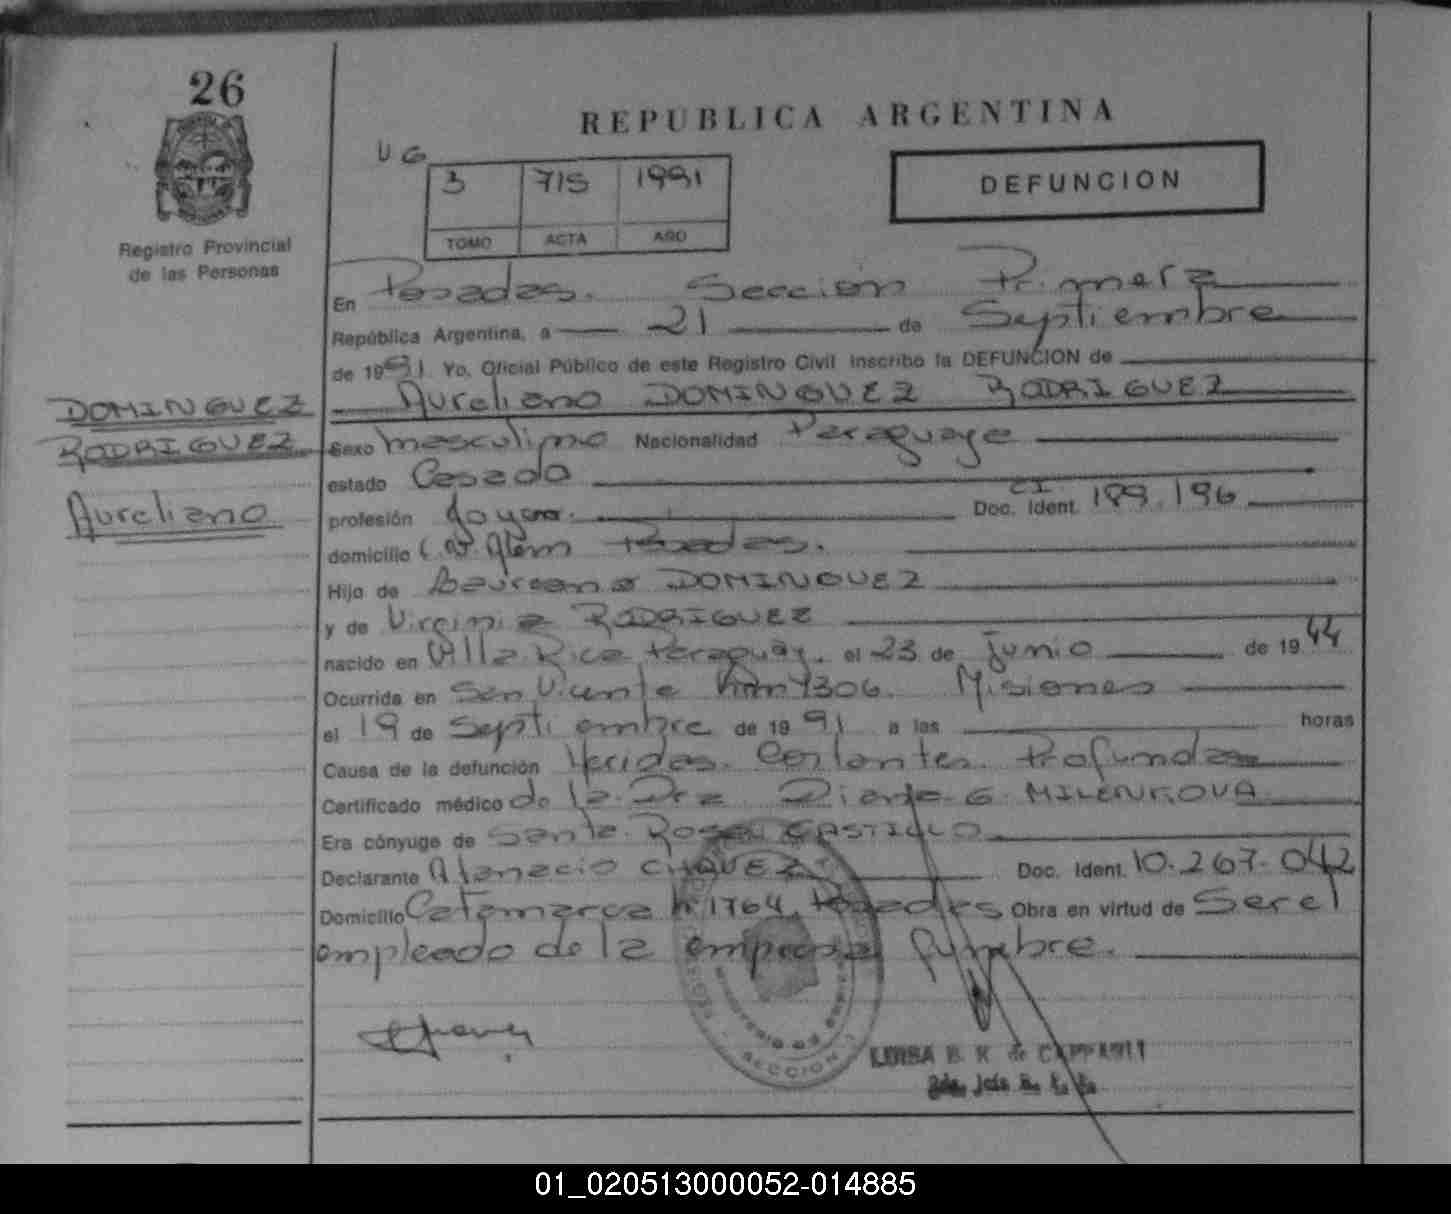 26
REPUBLICA ARGENTINA
UG
3 715 1991
TOMO ACTA AÑO
DEFUNCION
Registro Provincial
de las Personas
En Posadas. Sección Primera
República Argentina, a 21 de Septiembre
de 1991. Yo, Oficial Público de este Registro Civil inscribo la DEFUNCION de
Aureliano DOMINGUEZ RODRIGUEZ
DOMINGUEZ
RODRIGUEZ
Aureliano
Sexo masculino Nacionalidad Paraguaya
estado Casado
profesión Doc. Ident. CI 189.196
domicilio Alem Posadas.
Hijo de DOMINGUEZ
y de Virginia RODRIGUEZ
nacido en Villa Rica Paraguay, el 23 de junio de 1944
Ocurrida en San Vicente Km 1306. Misiones
el 19 de Septiembre de 1991 a las horas
Causa de la defunción Heridas Cortantes Profundas
Certificado médico de la Dra Diana G. MILENKOVA
Era cónyuge de Santa Rosa CASTILLO
Declarante Atanacio CHAVEZ Doc. Ident. 10.267.042
Domicilio Catamarca Nº 1764, Posadas Obra en virtud de Ser el
empleado de la empresa fúnebre.
SECCION 1
LUISA B. K. de
01_020513000052-014885